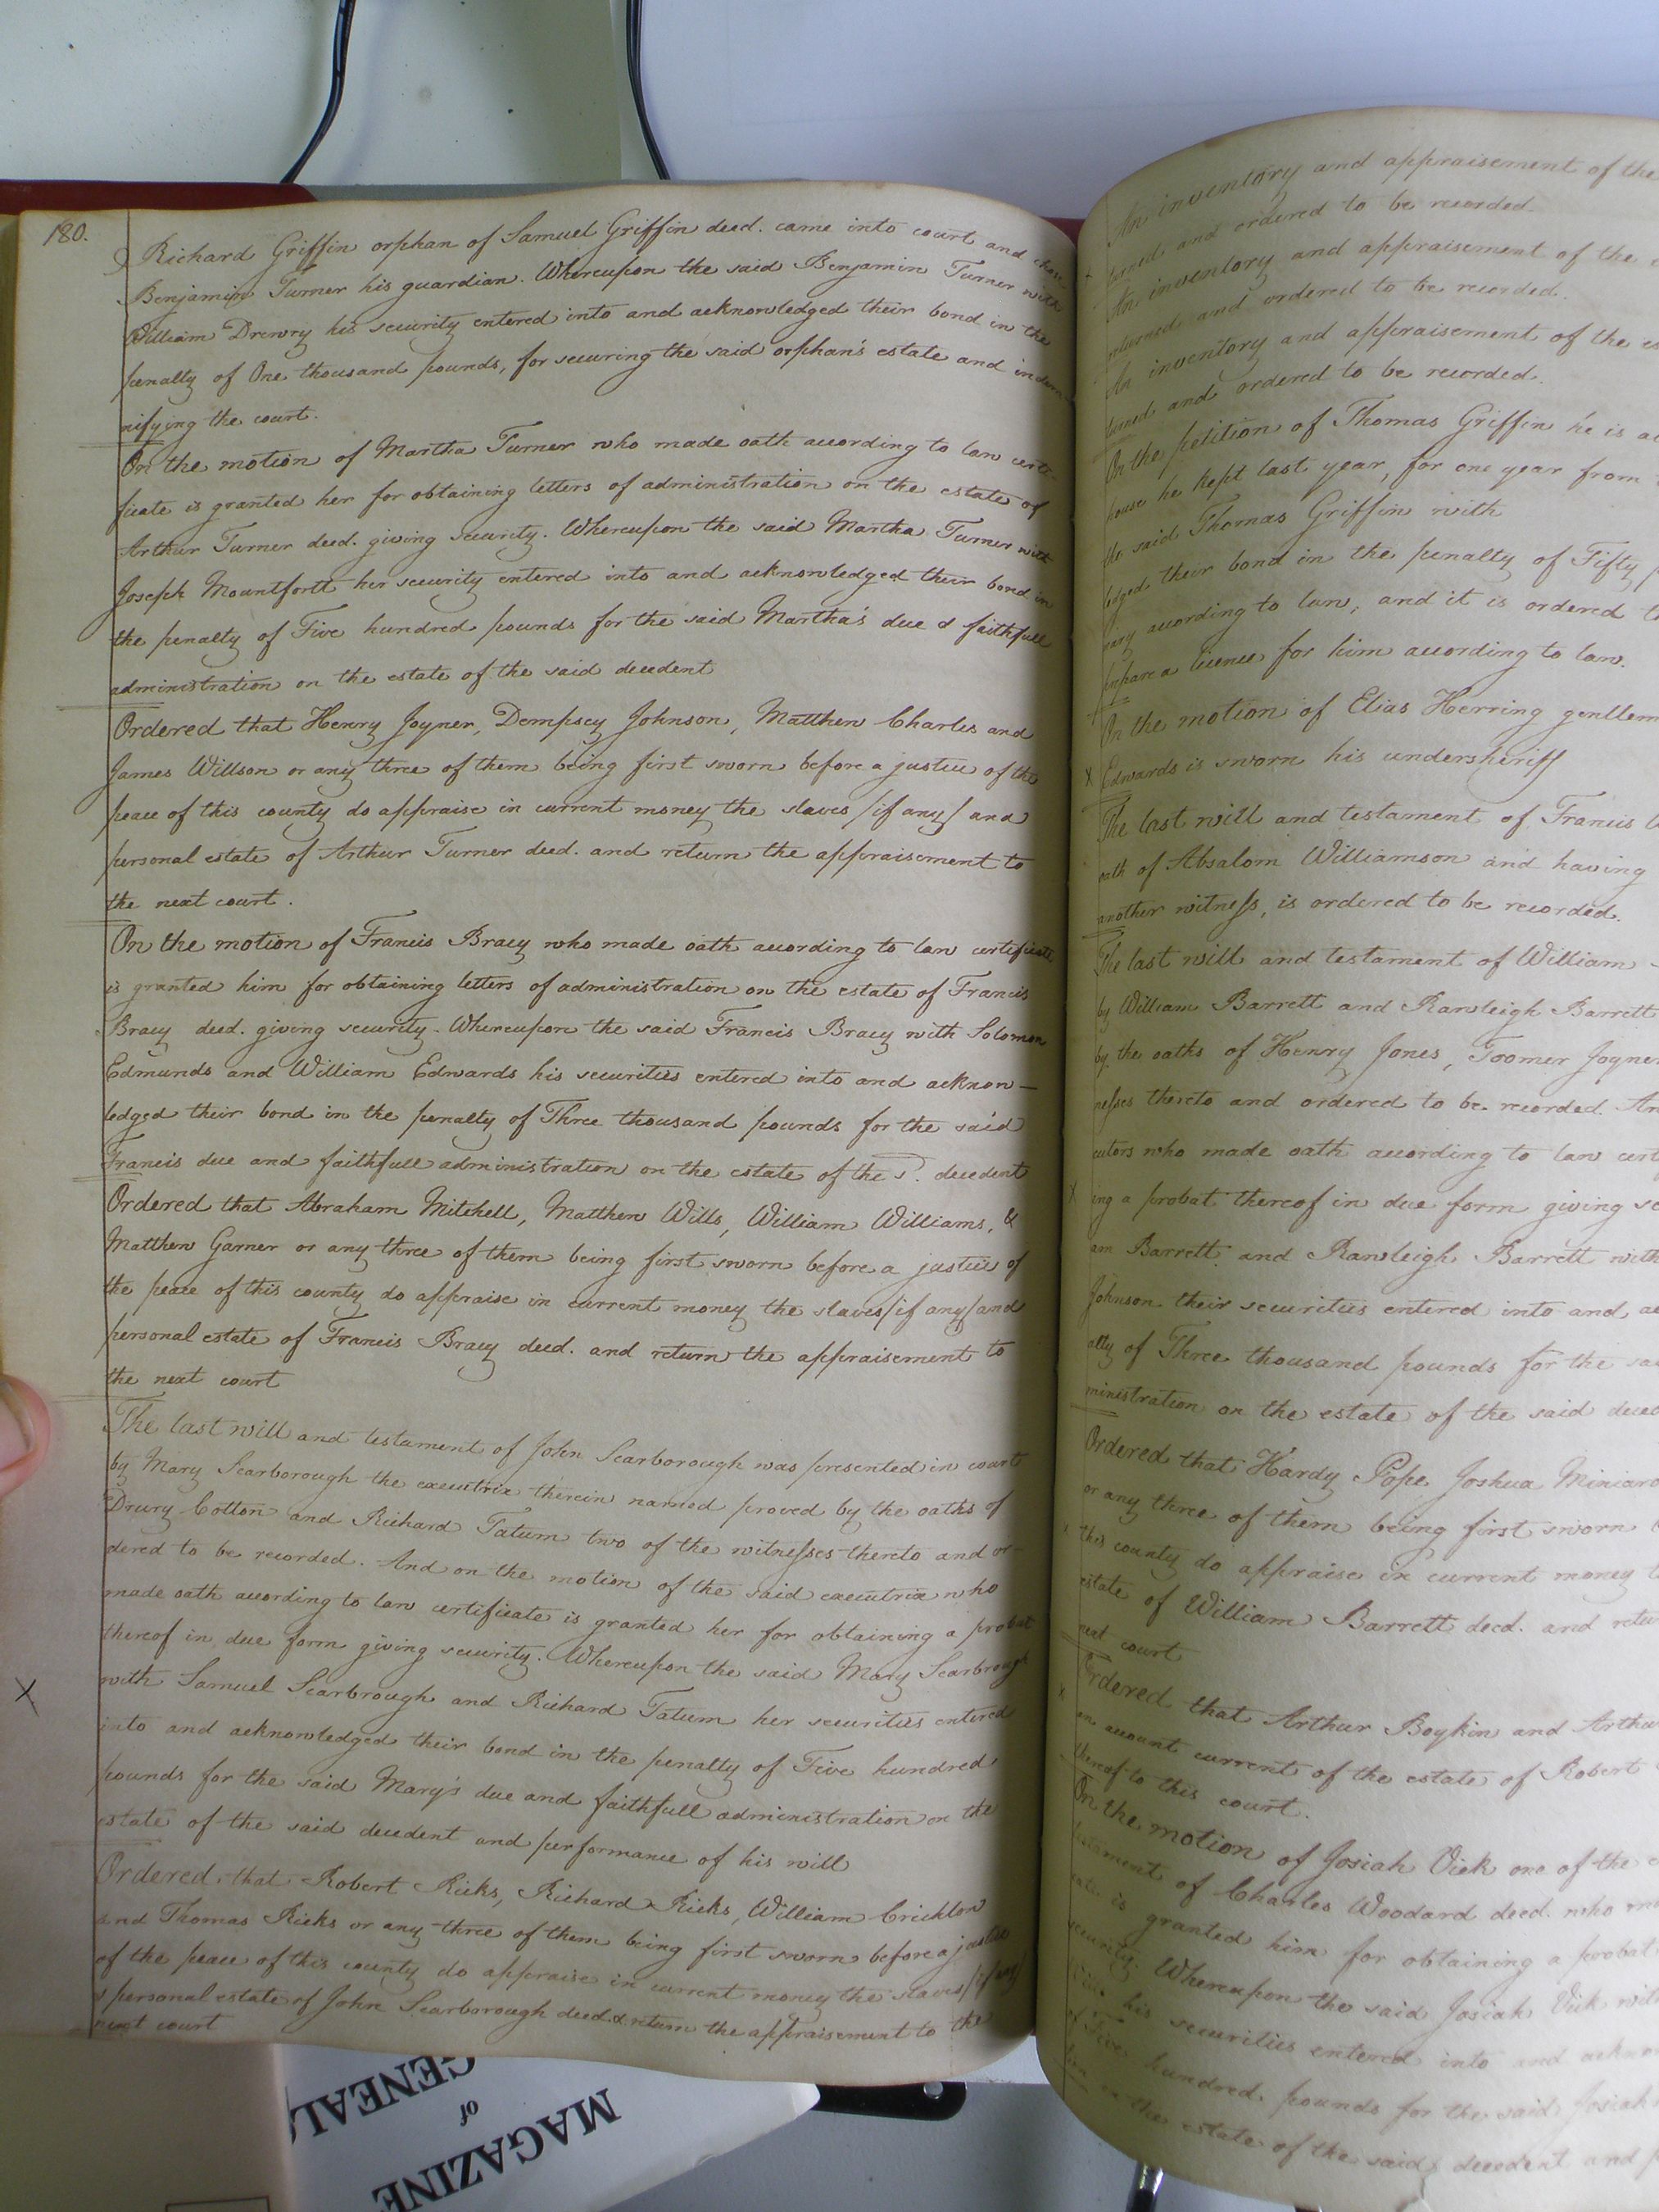 180.
Richard Griffin orphan of Samuel Griffin decd. came into court and chose
Benjamin Turner his guardian. Whereupon the said Benjamin Turner with
William Drewry his security entered into and acknowledged their bond in the
penalty of One thousand pounds, for securing the said orphan's estate and indem
nifying the court.
On the motion of Martha Turner who made oath according to law certi-
ficate is granted her for obtaining letters of administration on the estate of
Arthur Turner decd. giving security. Whereupon the said Martha Turner with
Joseph Mountfortt her security entered into and acknowledged their bond in
the penalty of Five hundred pounds for the said Martha's due & faithfull
administration on the estate of the said decedent
Ordered that Henry Joyner, Dempsey Johnson, Matthew Charles and
James Willson or any three of them being first sworn before a justice of the
peace of this county do appraise in current money the slaves /if any/ and
personal estate of Arthur Turner decd. and return the appraisement to
the next court.
On the motion of Francis Bracy who made oath according to law certificate
is granted him for obtaining letters of administration on the estate of Francis
Bracy decd. giving security. Whereupon the said Francis Bracy with Solomon
Edmunds and William Edwards his securities entered into and acknow-
ledged their bond in the penalty of Three thousand pounds for the said
Francis due and faithfull administration on the estate of the sd. decedent
Ordered that Abraham Mitchell, Matthew Wills, William Williams, &
Matthew Garner or any three of them being first sworn before a justice of
the peace of this county do appraise in current money the slaves /if any/ and
personal estate of Francis Bracy decd. and return the appraisement to
the next court
The last will and testament of John Scarborough was presented in court
by Mary Scarborough the executrix therein named proved by the oaths of
Drury Cotton and Richard Tatum two of the witnesses thereto and or-
dered to be recorded. And on the motion of the said executrix who
made oath according to law certificate is granted her for obtaining a probat
thereof in due form giving security. Whereupon the said Mary Scarbrough
X
with Samuel Scarbrough and Richard Tatum her securities entered
into and acknowledged their bond in the penalty of Five hundred
pounds for the said Mary's due and faithfull administration on the
estate of the said decedent and performance of his will
Ordered that Robert Ricks, Richard Ricks, William Crichlow
and Thomas Ricks or any three of them being first sworn before a justice
of the peace of this county do appraise in current money the slaves /if any/
& personal estate of John Scarborough decd. & return the appraisement to the
next court
An inventory and appraisement of the
turned and ordered to be recorded.
An inventory and appraisement of the
returned and ordered to be recorded.
An inventory and appraisement of the es
turned and ordered to be recorded.
On the petition of Thomas Griffin he is
house he kept last year, for one year from
the said Thomas Griffin with
ledged their bond in the penalty of Fifty
nary according to law, and it is ordered
prepare a licence for him according to law.
On the motion of Elias Herring gentlem
X Edwards is sworn his undersheriff
The last will and testament of Francis
oath of Absalom Williamson and having
another witness, is ordered to be recorded.
The last will and testament of William
by William Barrett and Rawleigh Barrett
by the oaths of Henry Jones, Toomer Joyner
nesses thereto and ordered to be recorded. An
cutors who made oath according to law cert
X ing a probat thereof in due form giving se
am Barrett and Rawleigh Barrett with
Johnson their securities entered into and ac
alty of Three thousand pounds for the sai
ministration on the estate of the said deced
Ordered that Hardy Pope Joshua Miniard
or any three of them being first sworn
this county do appraise in current money
estate of William Barrett decd. and retur
next court
Ordered that Arthur Boykin and Arthur
an account current of the estate of Robert
thereof to this court.
On the motion of Josiah Vick one of the
testament of Charles Woodard decd. who ma
cate is granted him for obtaining a probat
security. Whereupon the said Josiah Vick with
his securities entered into and acknow
of Five hundred pounds for the said Josiah
on the estate of the said decedent and p
MAGAZINE
of
GENEAL